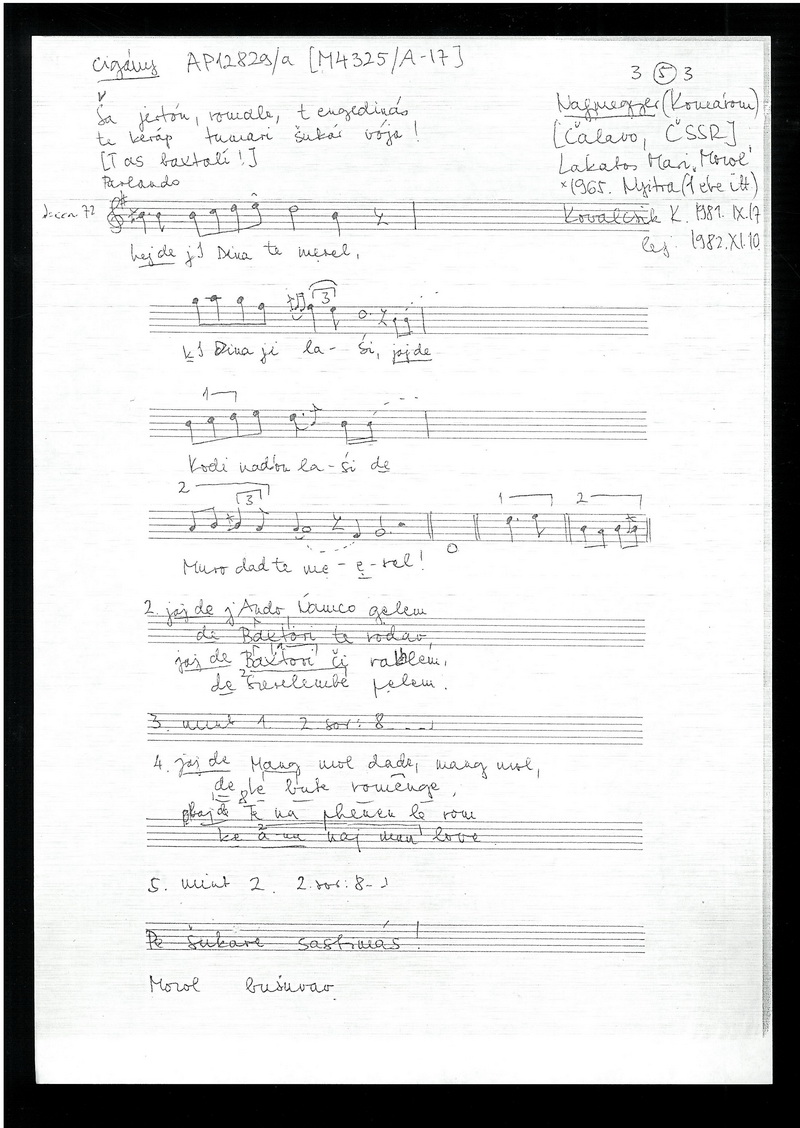 cigány AP12829/a [M4325/A-17]
3 5 3
Ša jertón, romale, t engedinás
te keráp tumari šukár vója!
[T as baxtalí!]
Parlando
Nagymegyer (Komárom)
[Čalavo, ČSSR]
Lakatos Mari "Morol"
*1965. Nyitra (1 éve itt)
Kovalcsik K. 1981. IX. 17
lej. 1982. XI. 10.
72
hejde j Dina te merel,
3
k Dina ji la - ši, jojde
1
Kodi nadon la - ši de
2 3 1 2
Muro dad te me - e - rel!
2. jaj de j'Ando Namco gelem
de Baxtori te rodav,
jaj de Baxtori či raklem,
de 2 šerelembe pelem.
3. mint 1. 2. sor: 8
4. jaj de Mang mol dade, mang mol,
de le bute romenge,
jaj de Te na phenen le rom
ke á-na naj man love
5. mint 2. 2. sor: 8
Pe šukare sastimás!
Morol bušuvav.